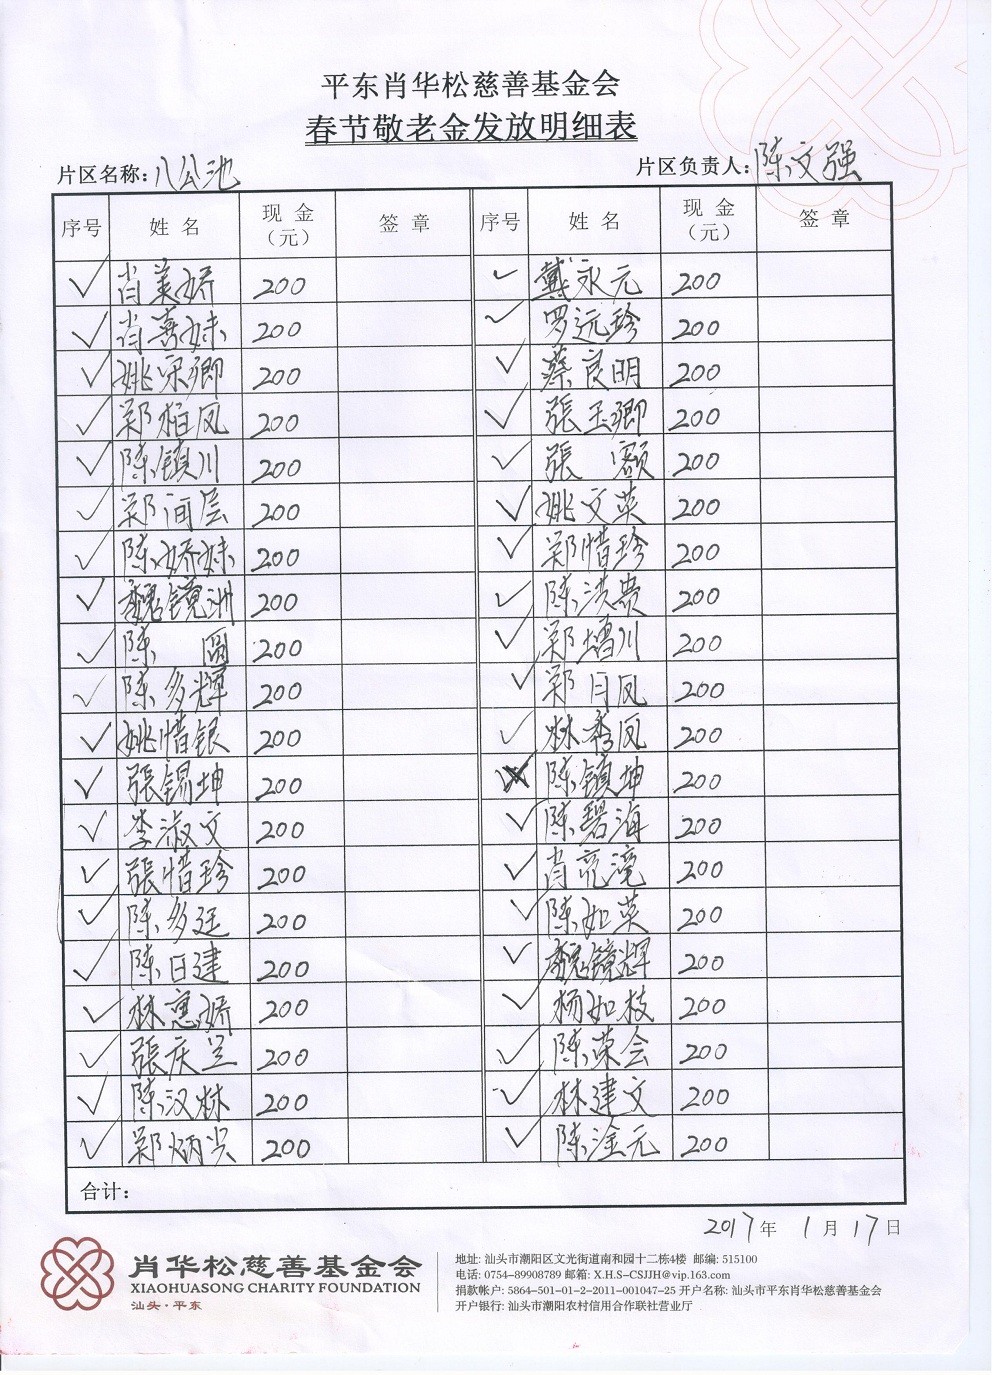 平东肖华松慈善基金会
春节敬老金发放明细表
片区名称:八公池 片区负责人:陈文强
序号 姓名 现金（元） 签章 序号 姓名 现金（元） 签章
✓ 肖美娇 200 ✓ 戴永元 200
✓ 肖喜妹 200 ✓ 罗远珍 200
✓ 姚宋卿 200 ✓ 蔡良明 200
✓ 郑柏凤 200 ✓ 張玉卿 200
✓ 陈镇川 200 ✓ 張 200
✓ 郑闻层 200 ✓ 姚文英 200
✓ 陈娇妹 200 ✓ 郑惜珍 200
✓ 魏镜洲 200 ✓ 陈洪贵 200
✓ 陈圆 200 ✓ 郑增川 200
✓ 陈多辉 200 ✓ 郑月凤 200
✓ 姚惜银 200 ✓ 林秀凤 200
✓ 張锡坤 200 陈镇坤 200
✓ 李淑文 200 ✓ 陈碧海 200
✓ 張惜珍 200 ✓ 肖 200
✓ 陈多廷 200 ✓ 陈如英 200
✓ 陈日建 200 ✓ 魏镜辉 200
✓ 林惠娇 200 ✓ 杨如枝 200
✓ 張庆兰 200 ✓ 陈荣会 200
✓ 陈汉林 200 ✓ 林建文 200
✓ 郑炳兴 200 ✓ 陈淦元 200
合计:
2017年 1月17日
肖华松慈善基金会
XIAOHUASONG CHARITY FOUNDATION
汕头·平东
地址: 汕头市潮阳区文光街道南和园十二栋4楼 邮编: 515100
电话: 0754-89908789 邮箱: X.H.S-CSJJH@vip.163.com
捐款帐户: 5864-501-01-2-2011-001047-25 开户名称: 汕头市平东肖华松慈善基金会
开户银行: 汕头市潮阳农村信用合作联社营业厅